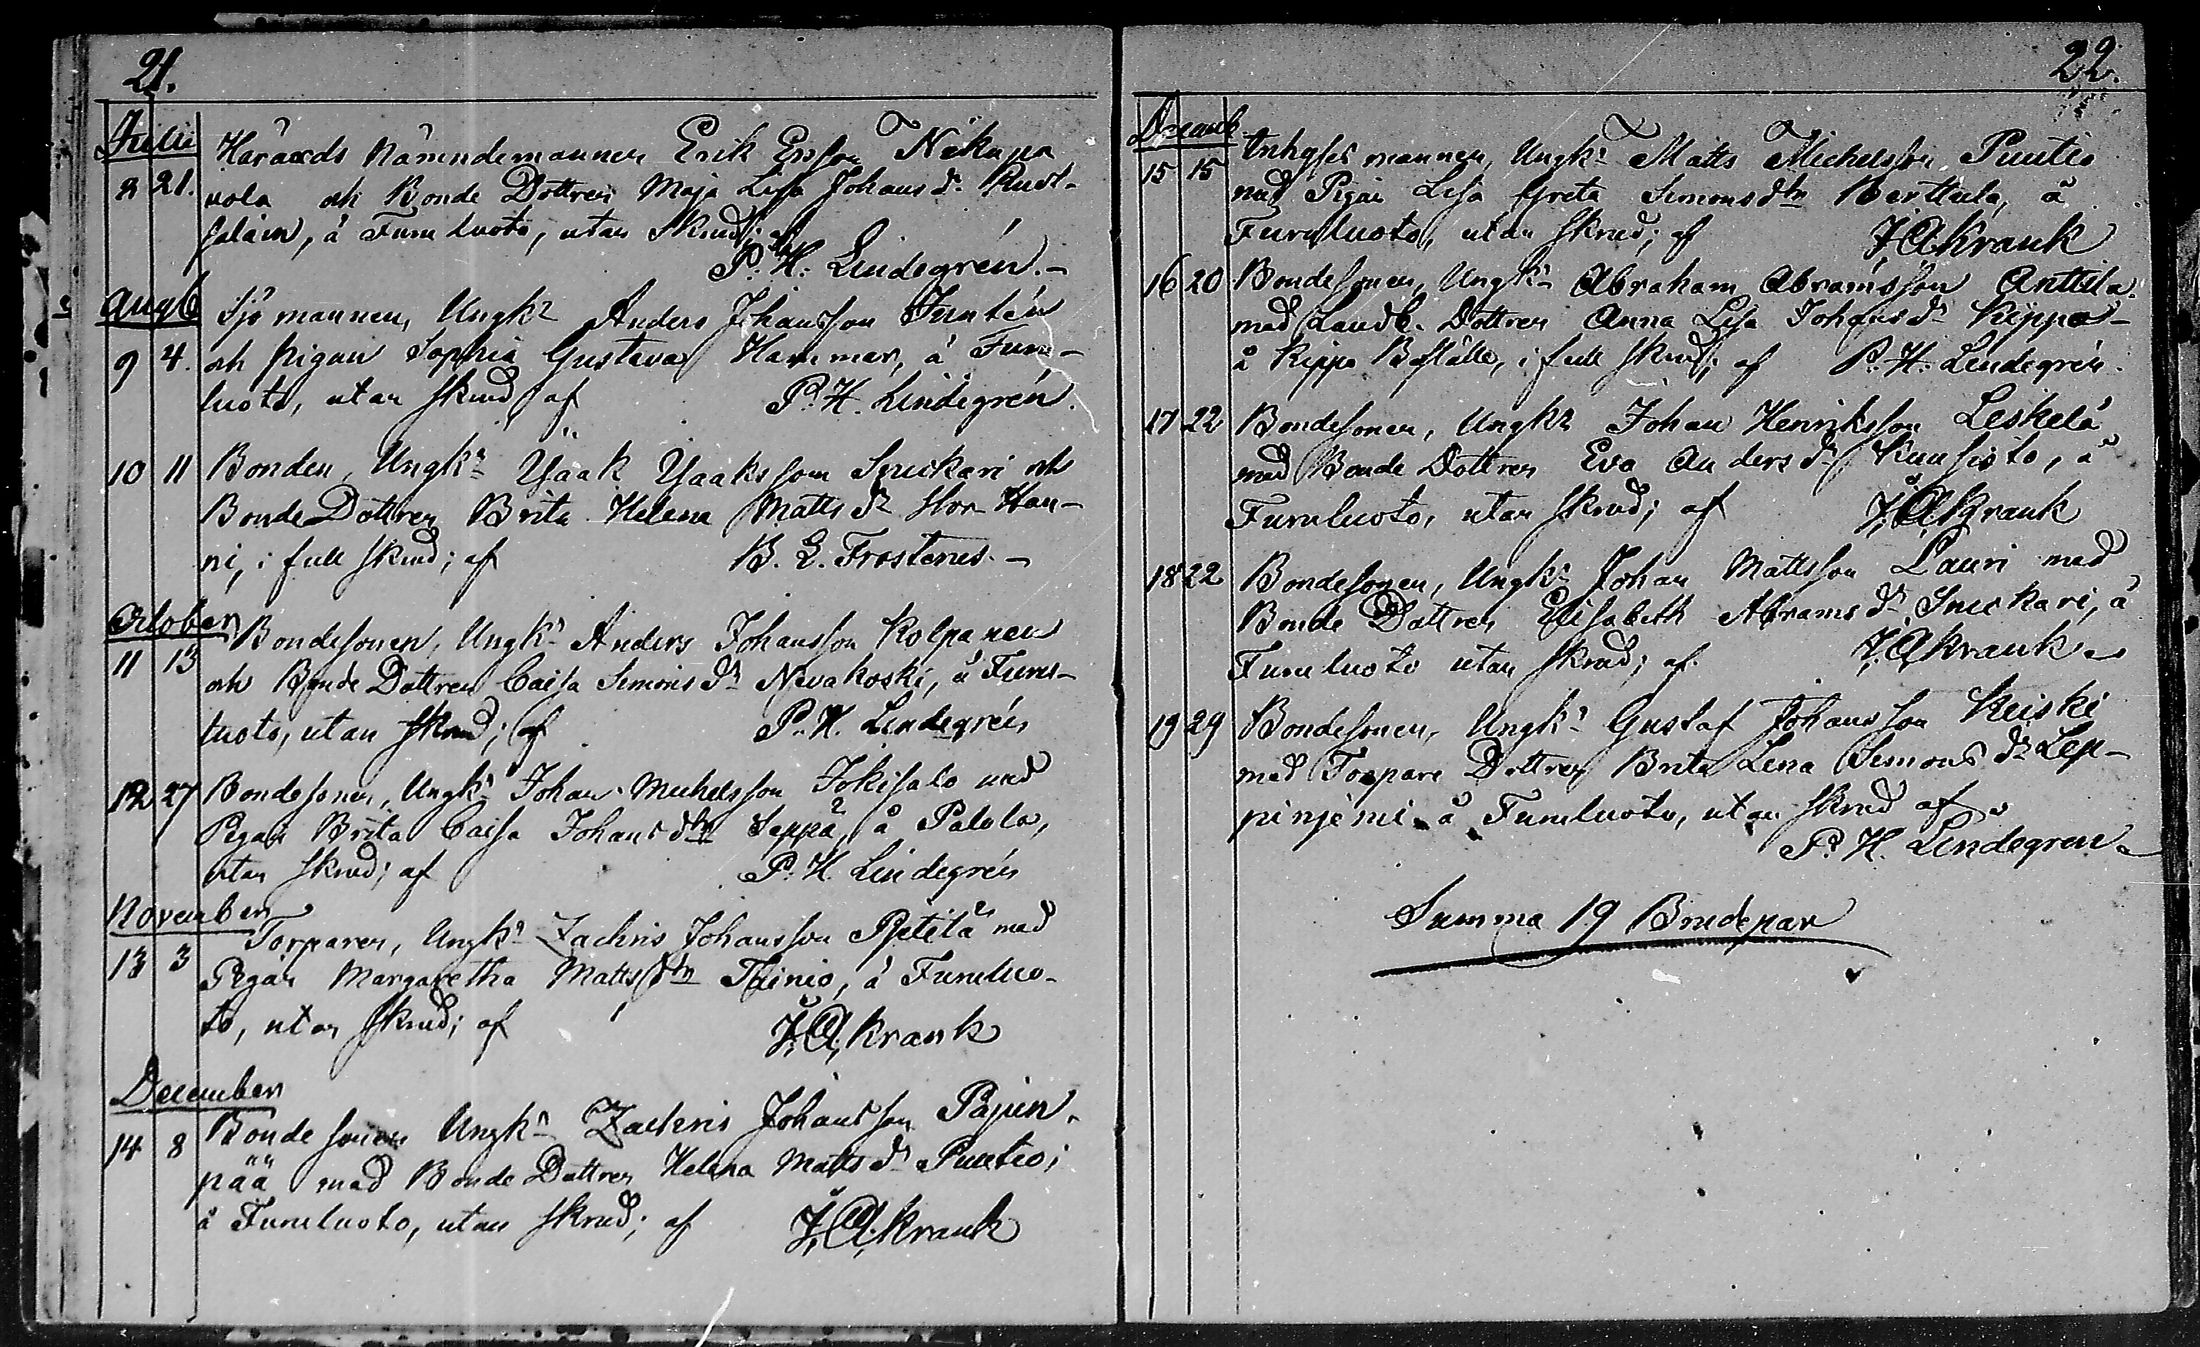 21.
Julii
8 21. Häradsnämndemannen Erik Ersson Niku pa
vola och Bonde Dottren Maja Lisa Johans dr
salain, å Furuluoto, utan skrud; af
P. H. Lindegrén.
Aug
9 4. Sjömannen, Ungkn Anders Johansson Juntén
och pigan Sophia Gustava Hammar, å Furu-
luoto, utan skrud af P. H. Lindegrén.
10 11 Bonden, Ungkn Ysaak Ysaksson Snickari och
Bonde Dottren Brita Helena Matts dr Stor Han-
ni, i full skrud; af B. E. Frosterus.
October
11 13 Bondesonen, Ungkn Anders Johansson Kolpanen
och Bonde Dottren Caisa Simons dr Nivakoski, å Furu-
luoto, utan skrud; af P. H. Lindegrén
12 27 Bondesonen, Ungkn Johan Michelsson Jokisalo med
Pigan Brita Caisa Johans dtr Seppä, å Palola,
utan skrud; af P. H. Lindegrén
November
13 3 Torparen, Ungkn Zachris Johansson Pjetilä med
Pigan Margaretha Matts dtr å Furuluo-
to, utan skrud; af J. A. Krank
December
14 8 Bonde sonen Ungkn Zachris Johansson Pajun
pää med Bonde Dottren Helena Matts dr Puutio;
å Furuluoto, utan skrud; af J. A. Krank
22.
Decemb
15 15 Inhyses mannen, Ungkn Matts Michelsson Puutio
med Pigan Lisa Greta Simons dtr Berttula, å
Furuluoto, utan skrud; af J. A. Krank
16 20 Bondesonen, Ungkn Abraham Abramsson Anttila
med Landb. Dottren Anna Lisa Johans dr Kippo
å Kippo Boställe, i full skrud; af P. H. Lindegrén.
17 22 Bondesonen, Ungkn Johan Henriksson Leskelä
med Bonde Dottren Eva Anders dr Kuusisto, å
Furuluoto, utan skrud; af J. A. Krank
18 22 Bondesonen, Ungkn Johan Mattsson Lauri med
Bonde Dottren Elisabeth Abrams dr Snickari, å
Furuluoto utan skrud; af J. A. Krank
19 29 Bondesonen, Ungkn Gustaf Johansson Keiski
med Torpare Dottren Brita Lena Simons dr Lep-
pinjemi å Furuluoto, utan skrud af
P. H. Lindegren
Summa 19 Brudepar